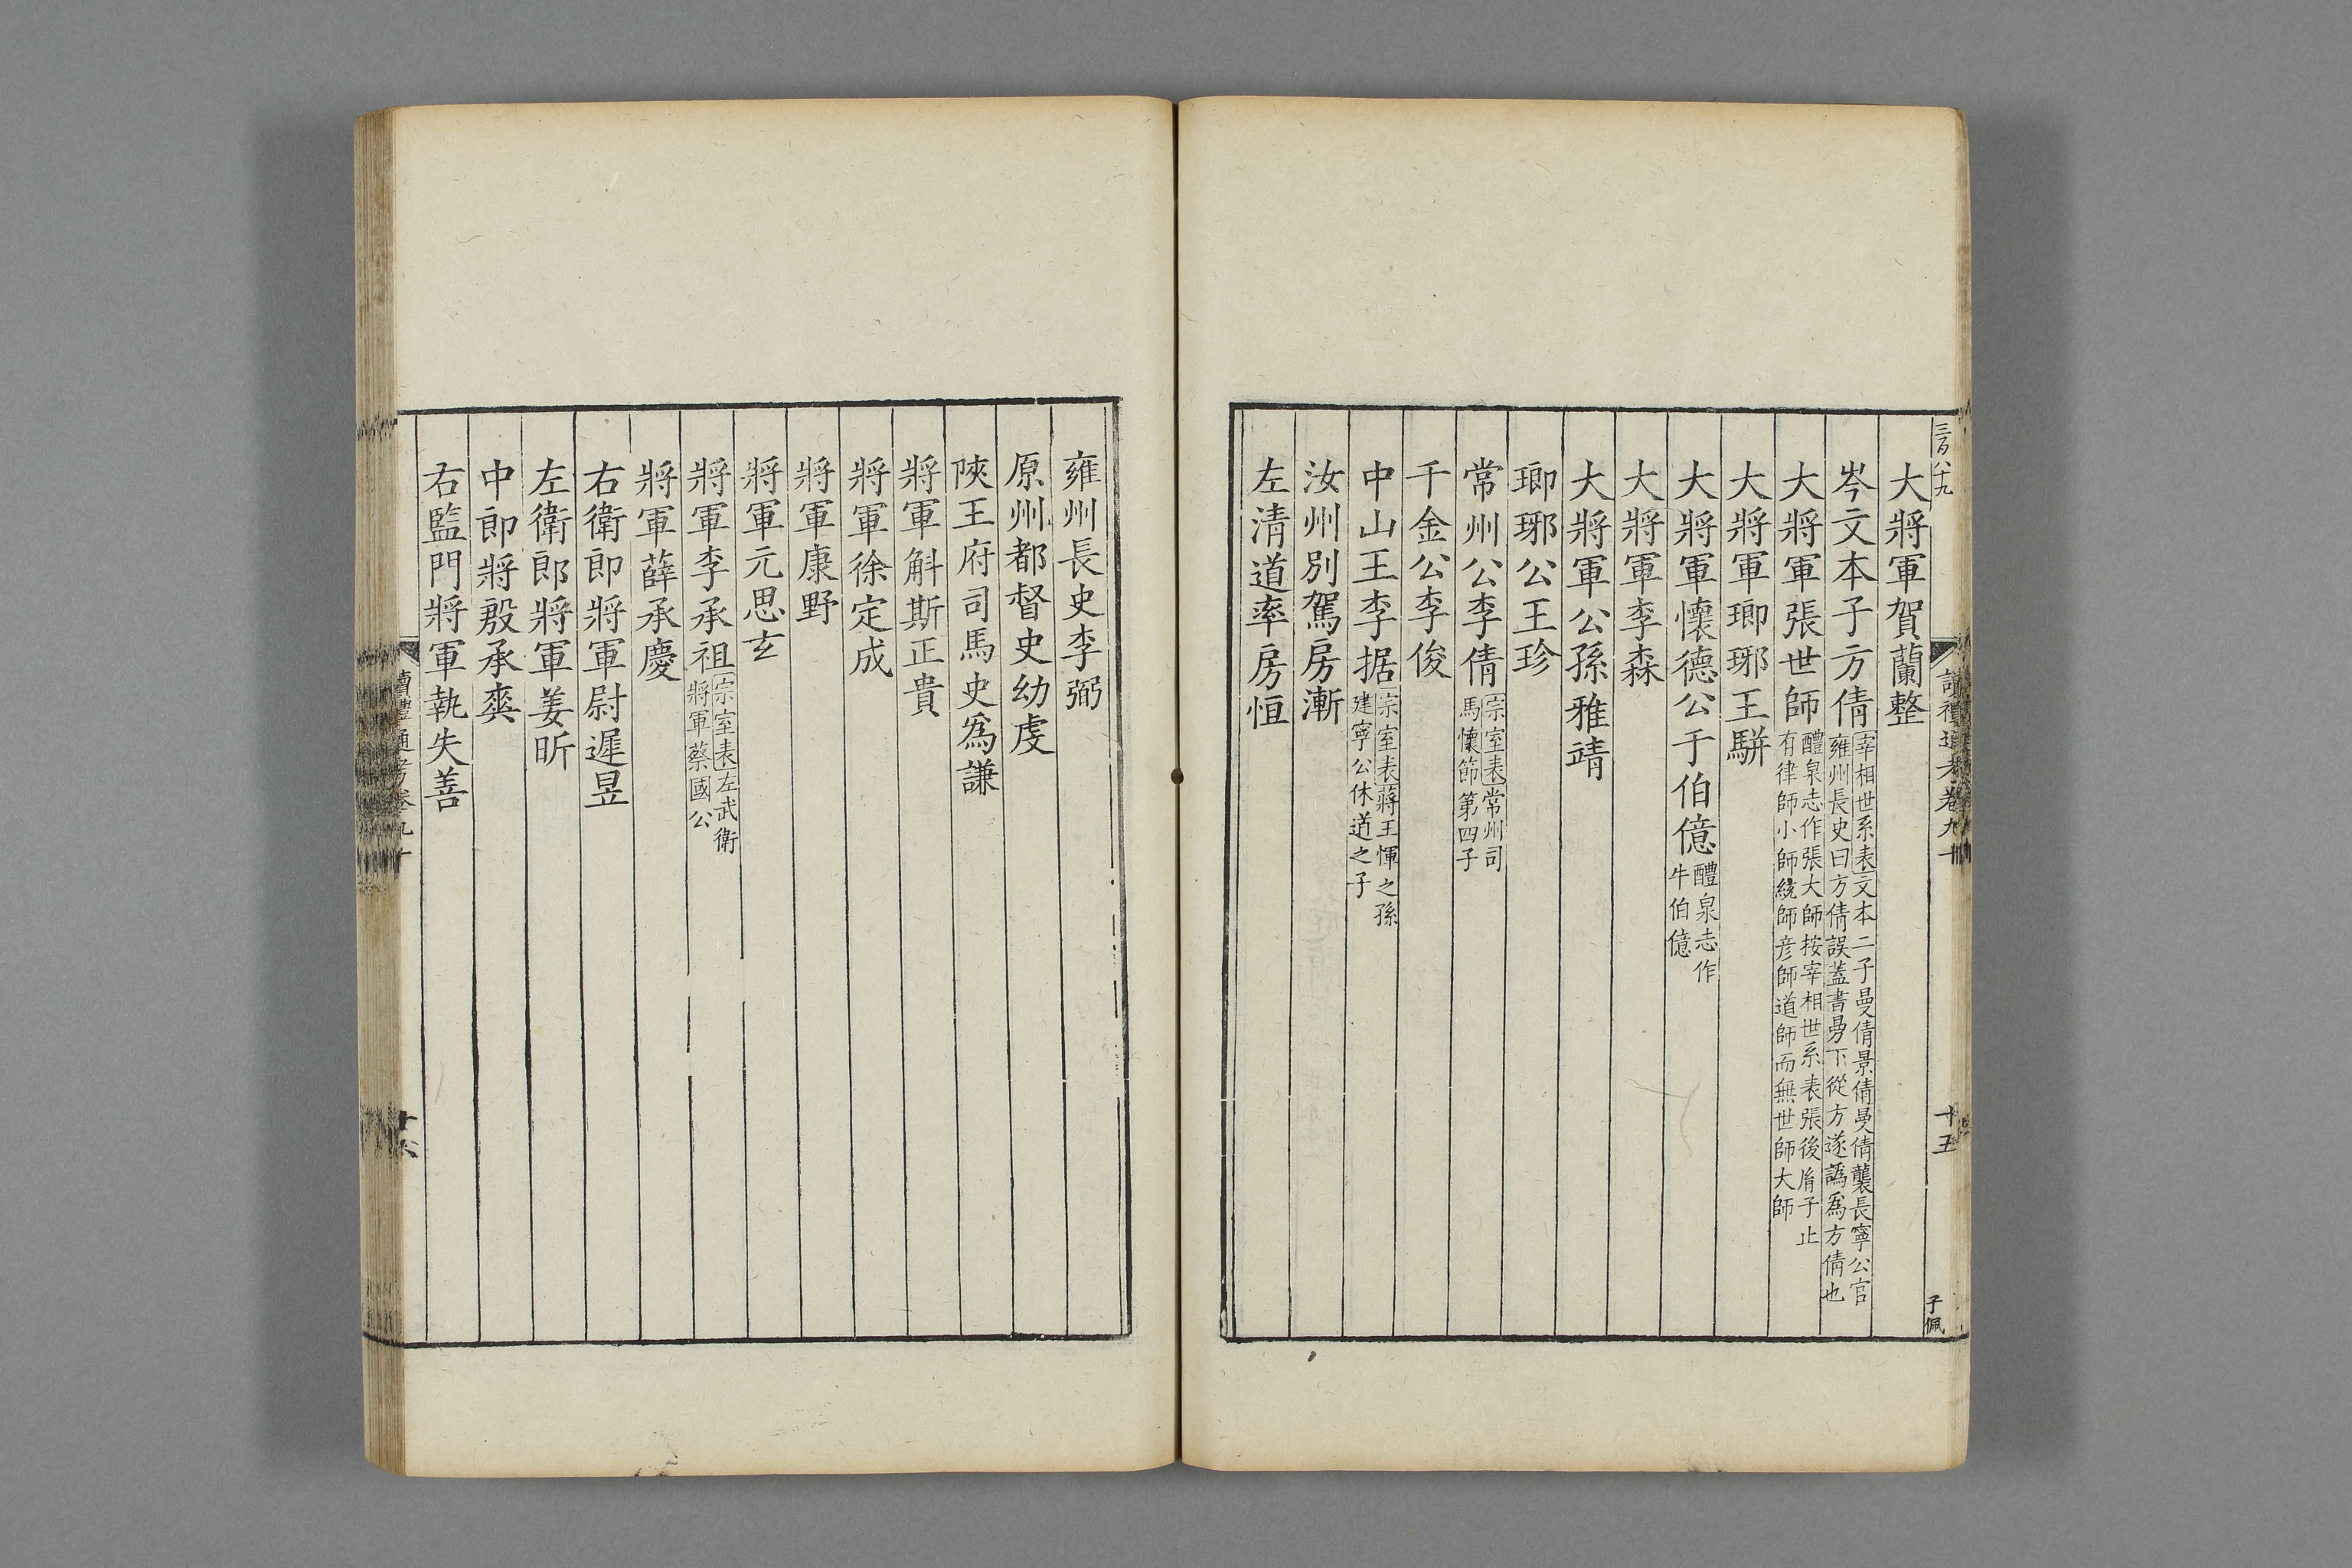 三百八十九
讀禮通考卷九十
十五
子佩
大將軍賀蘭整
岑文本子方倩宰相世系表文本二子曼倩景倩曼倩襲長寧公官
雍州長史曰方倩誤蓋書曼下從方遂譌爲方倩也
大將軍張世師醴泉志作張大師按宰相世系表張後胤子止
有律師小師統師彦師道師而無世師大師
大將軍瑯琊王駢
大將軍懷德公于伯億醴泉志作
牛伯億
大將軍李森
大將軍公孫雅靖
瑯琊公王珍
常州公李倩宗室表常州司
馬懷節第四子
千金公李俊
中山王李据宗室表蔣王惲之孫
建寧公休道之子
汝州別駕房漸
左清道率房恒
雍州長史李弼
原州都督史幼虔
陝王府司馬史爲謙
將軍斛斯正貴
將軍徐定成
將軍康野
將軍元思玄
將軍李承祖宗室表左武衛
將軍蔡國公
將軍薛承慶
右衛郎將軍尉遲昱
左衛郎將軍姜昕
中郎將殷承爽
右監門將軍執失善
讀禮通考卷九十
十六